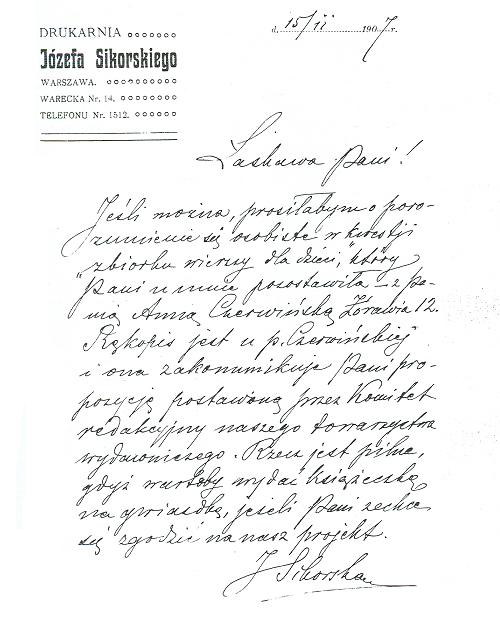 DRUKARNIA
d. 15/II 1907 r.
Józefa Sikorskiego
WARSZAWA.
WARECKA Nr. 14.
TELEFONU Nr. 1512.
Łaskawa Pani!
Jeśli można, prosiłabym o poro-
zumienie się osobiste w kwestji
"zbiorku wierszy dla dzieci," który
Pani u mnie pozostawiła – z pa-
nią Anną Czerwińską Żórawia 12.
Rękopis jest u p. Czerwińskiej
i ona zakomunikuje Pani pro-
pozycję postawioną przez Komitet
redakcyjny naszego towarzystwa
wydawniczego. Rzecz jest pilna,
gdyż wartoby wydać książeczkę
na gwiazdkę, jeżeli Pani zechce
się zgodzić na nasz projekt.
J Sikorska